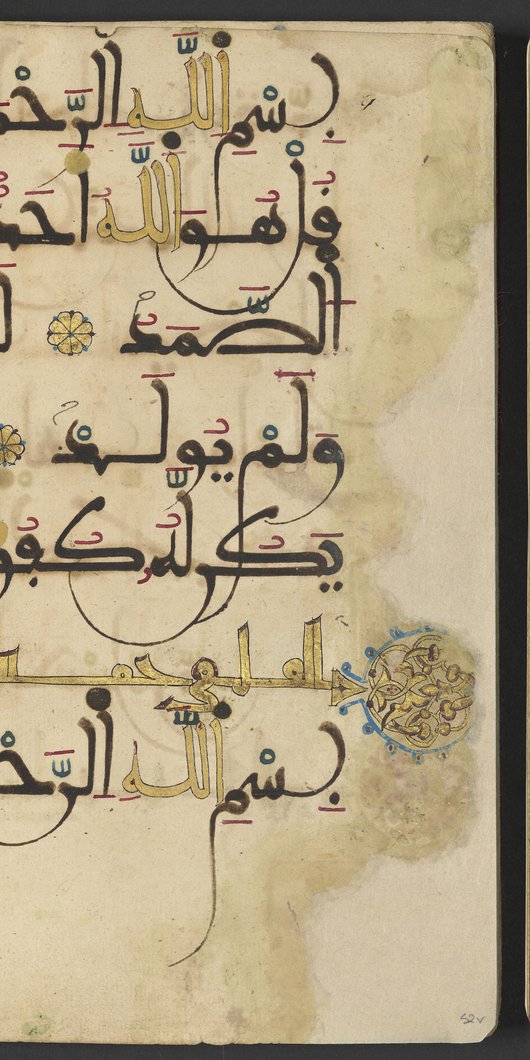 بِسْمِ اللَّهِ الرَّحْمَ
قُلْ هُوَ اللَّهُ أَحَدٌ
الصَّمَدُ لَ
وَلَمْ يُولَدْ
يَكُن لَّهُ كُفُو
الفلق خمس
بِسْمِ اللَّهِ الرَّحْ
52v